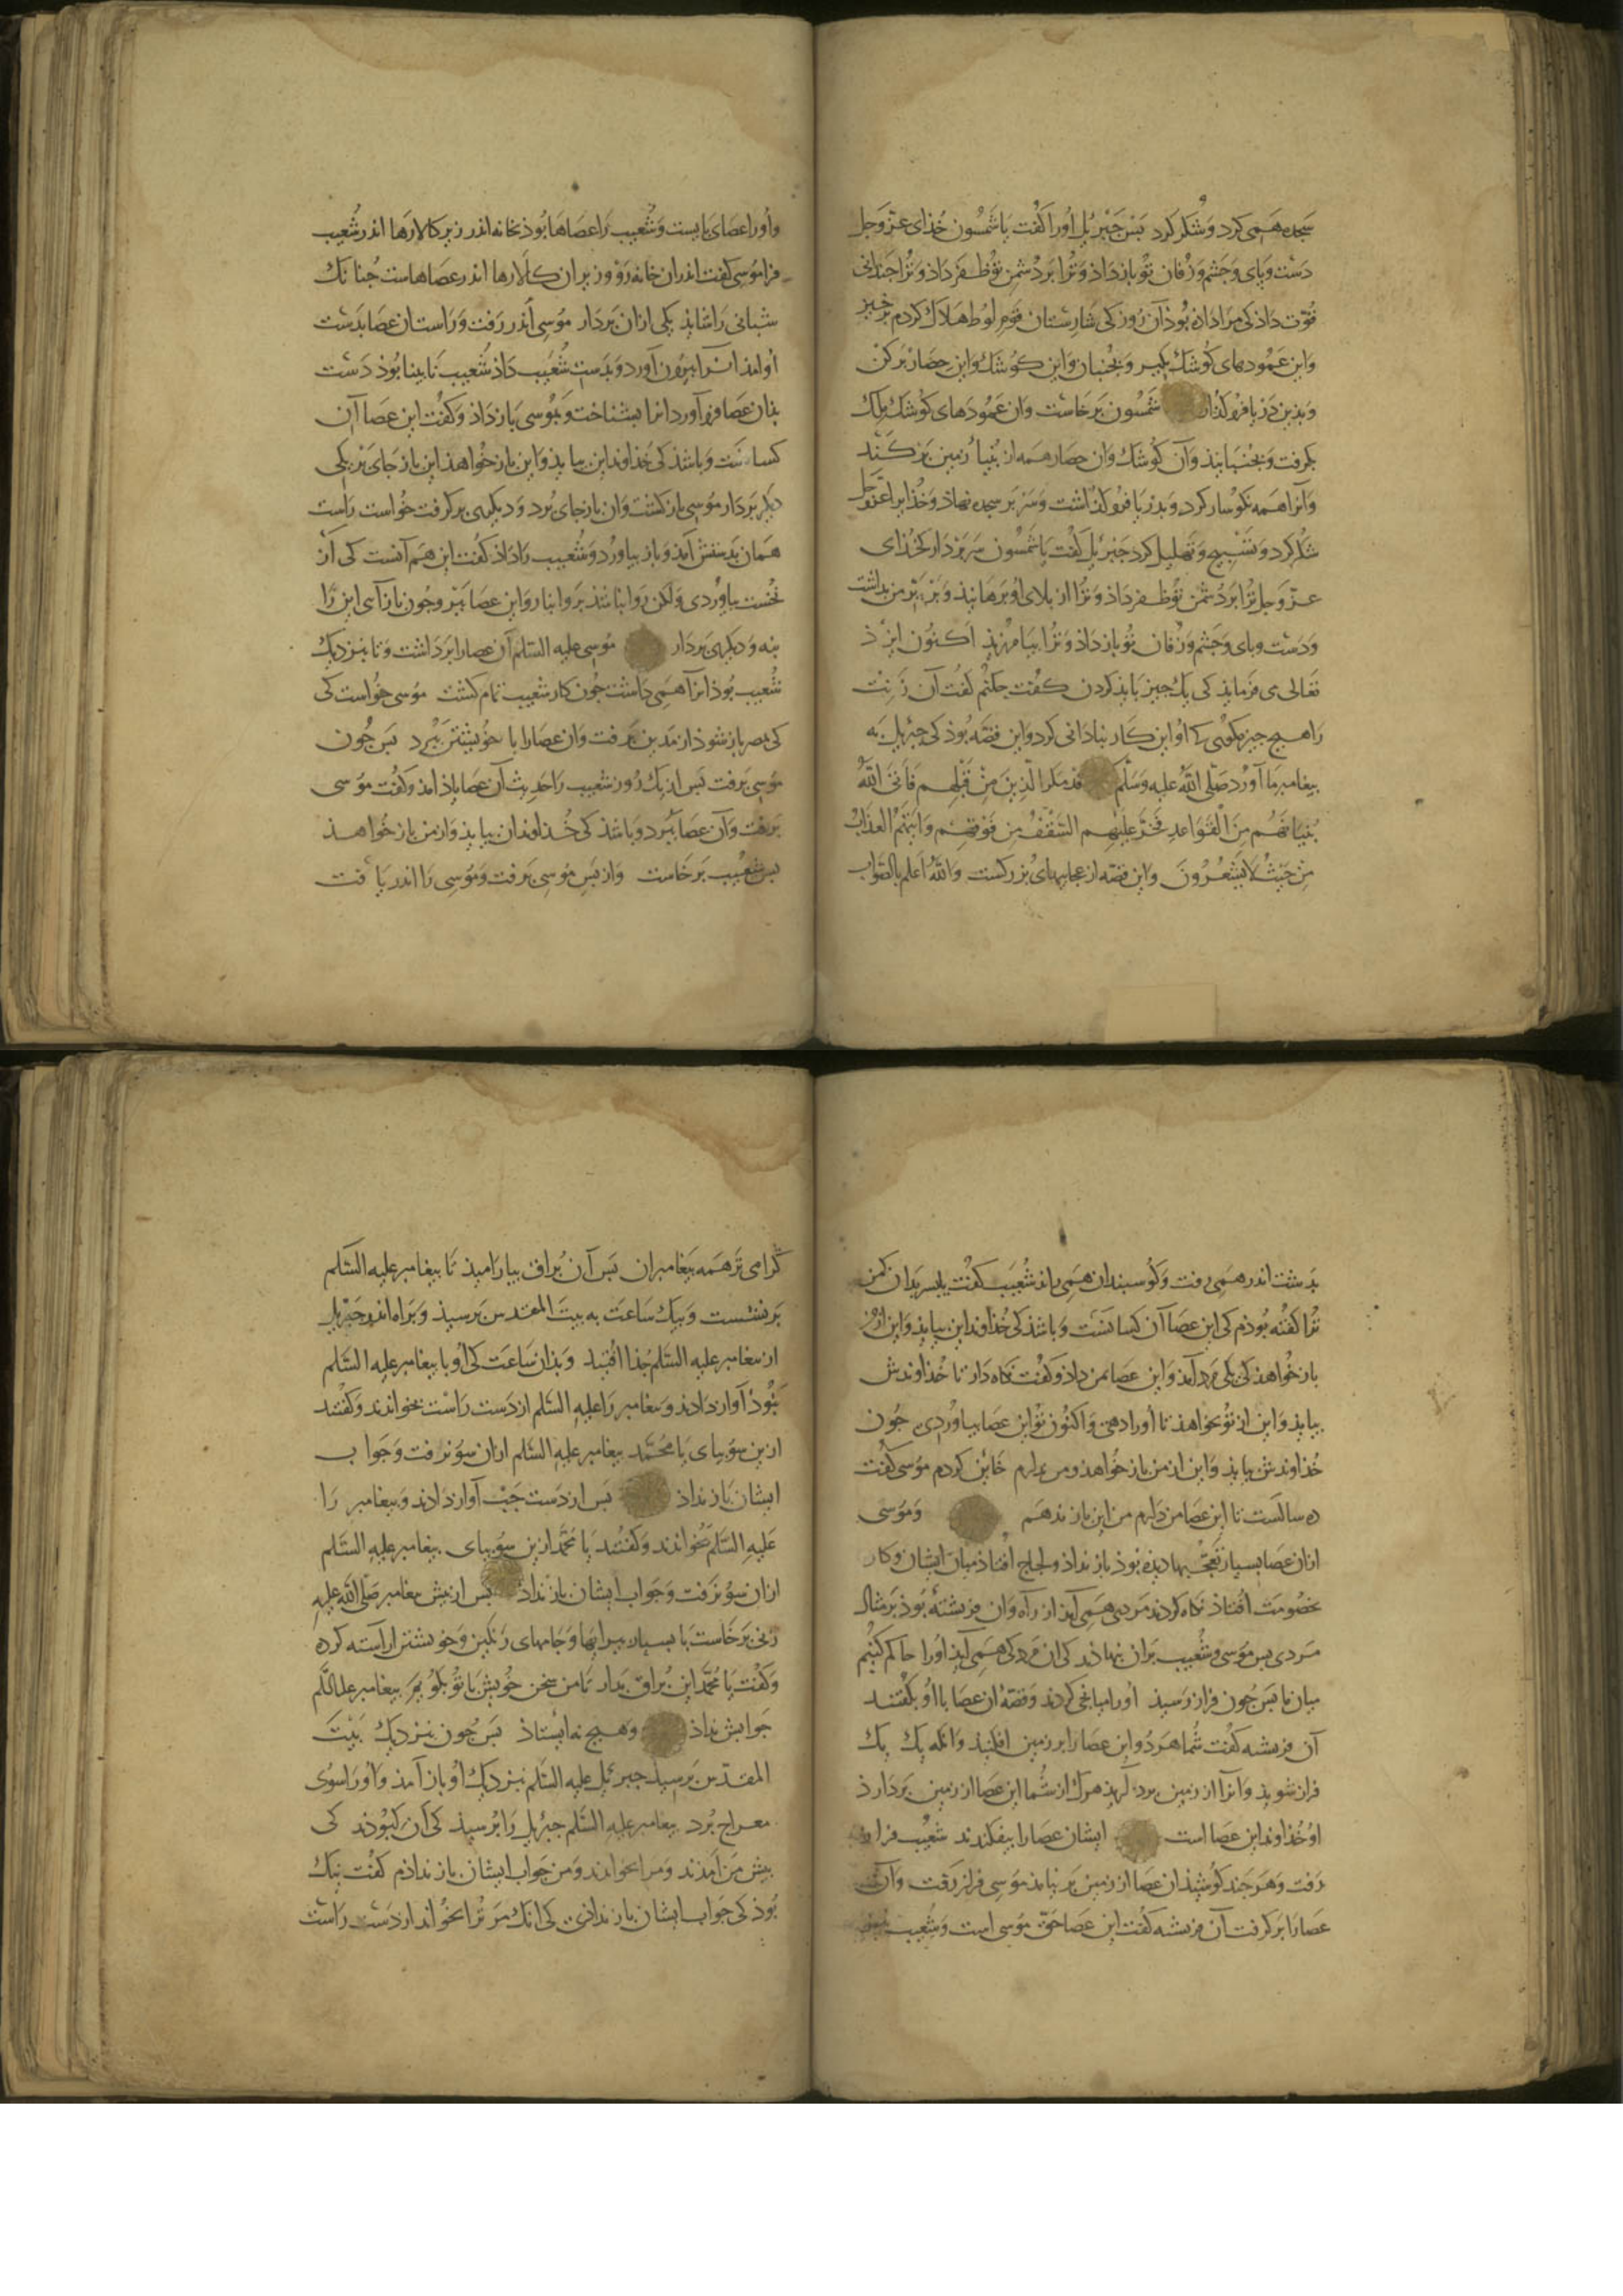 سجده همی کرد و شکر کرد بس جبریل اورا کفت یا شمسون خذای عزّ وجل
دست وبای وجشم وزفان تو باز داذ وترا بر دشمن تو ظفر داذ وترا جندانی
قوّت داذ کی مرا داذه بوذ آن روز کی شارستان قوم لوط هلاک کردم برخیز
واین عمودهای کوشک بکیر وبجنبان واین کوشک واین حصار برکن
وبذین دریا فرو کذار شمسون برخاست وان عمودهای کوشک ملک
بکرفت وبجنبانیذ وآن کوشک وان حصار همه از بنیاد زمین برکند
وآنرا همه نکوسار کرد وبدریا فرو کذاشت وسر بر سجده نهاذ وخذایرا عزّوجل
شکر کرد وتسبیح وتهلیل کرد جبرئیل کفت یا شمسون سر بردار کی خذای
عزّ وجل ترا بر دشمن تو ظفر داذ وترا از بلای او برهانیذ و من بداشت
ودست وبای وجشم وزفان تو باز داذ وترا بیامرزیذ اکنون ایزذ
تعالی می فرمایذ کی یک جیز بایذ کردن کفت جکنم کفت آن زنت
را هیج جیز مکوی کی او این کار بناذانی کرد واین قصّه بوذ کی جبریل به
بیغامبر ما آورد صلّی الله علیه وسلّم قد مکر الّذین من قبلهم فاتی الله
بنیانهم من القواعد فخرّ علیهم السّقف من فوقهم واتیهم العذاب
من حیث لا یشعرون واین قصّه از عجایبهای بزرکست والله اعلم بالصّواب
واورا عصای بایست وشعیب را عصاها بوذ بخانه اندر زیر کالارها اندر شعیب
فرا موسی کفت اندران خانه رو وزیر ان کالارها اندر عصاهاست جنانک
شبانی را شایذ یکی ازان بردار موسی اندر رفت وراست ان عصا بدست
او امذ انرا بیرون آورد وبدست شعیب داذ شعیب نابینا بوذ دست
بذان عصا فرو آورد انرا بشناخت وبموسی باز داذ وکفت این عصا آن
کسانست وباشذ کی خذاوند این بیایذ واین باز خواهذ این باز جای بر یکی
دیکر بردار موسی باز کشت وان باز جای برد ودیکری برکرفت خواست راست
همان بدستش آمذ وباز بیاورد وشعیب را داذ کفت این هم آنست کی از
نخست بیاوردی ولکن روا نباشذ واین عصا ببر وجون باز آی این را
بنه ودیکری بردار موسی علیه السّلم آن عصارا برداشت وتا بنزدیک
شعیب بوذ انرا همی داشت جون کار شعیب تمام کشت موسی خواست کی
کی بمصر باز شوذ از مدین برفت وان عصارا با خویشتن ببرد بس جون
موسی برفت بس از یک روز شعیب را حدیث آن عصا یاذ امذ وکفت موسی
برفت وآن عصا ببرد وباشذ کی خذاوندان بیایذ واز من باز خواهذ
بس شعیب برخاست واز بس موسی برفت وموسی را اندر یافت
بدشت اندر همی رفت وکوسبندان همی راند شعیب کفت یا بسر بدان کی من
ترا کفته بوذم کی این عصا آن کسانست وباشذ کی خذاوند این بیایذ واین از من
باز خواهذ کی یکی مرد آمذ واین عصا بمن داذ وکفت نکاه دار تا خذاوندش
بیایذ واین از تو بخواهذ تا اورا دهی واکنون تو این عصا بیاوردی جون
خذاوندش بیایذ واین از من باز خواهذ ومن ندارم خاین کردم موسی کفت
ده سالست تا این عصا من دارم من این باز ندهم وموسی
ازان عصا بسیار تعجّبها دیذه بوذ باز نداذ ولجاج افتاذ میان ایشان وکار
بخصومت افتاذ نکاه کردند مردی همی آمذ از راه وان فریشتهٔ بوذ بر مثال
مردی بس موسی وشعیب بران نهاذند کی ان مرد کی همی آیذ اورا حاکم کنیم
میان ما بس جون فراز رسیذ اورا میانجی کردند وقصّهٔ ان عصا با او بکفتند
آن فریشته کفت شما هر دو این عصارا بر زمین افکنیذ وانکه یک یک
فراز شویذ وانرا از زمین برداریذ هرک از شما این عصا از زمین بردارذ
او خذاوند این عصا است ایشان عصارا بیفکندند شعیب فراز
رفت وهرجند کوشیذ ان عصا از زمین بر نیامذ موسی فراز رفت وآن
عصارا برکرفت آن فریشته کفت این عصا حقّ موسی است وشعیب
کرامی تر همه بیغامبران بس آن براق بیارامیذ تا بیغامبر علیه السّلم
برنشست وبیک ساعت به بیت المقدس برسیذ وبراه اندر جبریل
از بیغامبر علیه السّلم جذا افتیذ وبذان ساعت کی او با بیغامبر علیه السّلم
نبوذ آواز دادند وبیغامبر را علیه السّلم از دست راست بخواندند وکفتند
ازین سو بیای یا محمّد بیغامبر علیه السّلم ازان سو نرفت وجواب
ایشان باز نداذ بس از دست جب آواز دادند وبیغامبر را
علیه السّلم بخواندند وکفتند یا محمّد ازین سو بیای بیغامبر علیه السّلم
ازان سو نرفت وجواب ایشان باز نداذ بس از بیش بیغامبر صلّی الله علیه
زنی برخاست با بسیار بیرایها وجامهای رنکین وخویشتن اراسته کرده
وکفت یا محمّد این براق بدار تا من سخن خویش با تو بکویم بیغامبر علیه السّلم
جوابش نداذ وهیج نه ایستاذ بس جون بنزدیک بیت
المقدّس برسیذ جبرئیل علیه السّلم بنزدیک او باز آمذ واورا سوی
معراج برد بیغامبر علیه السّلم جبریل را برسیذ کی آن کی بوذند کی
بیش من آمذند ومرا بخواندند ومن جواب ایشان باز نداذم کفت نیک
بوذ کی جواب ایشان باز نداذی کی انک مر ترا بخواند از دست راست